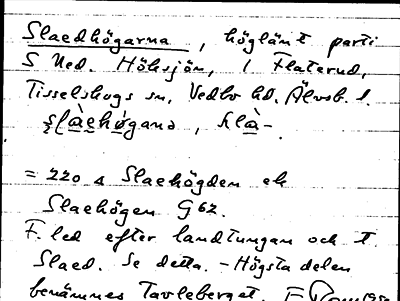 Slaedhögarna, höglänt parti
S Ned. Höksjön, i Flaterud,
Tisselskogs sn, Vedbo hd. Älvsb. l.
= 220 a Slaehögden ek
Slaehögen G 62.
F. led efter landtungan och t.
Slaed. Se detta. - Högsta delen
benämnes Tavleberget.